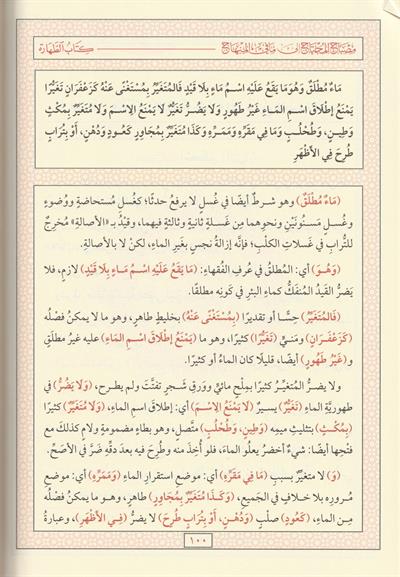 مصباح المحتاج إلى معاني المنهاج
كتاب الطهارة
مَاءٌ مُطْلَقٌ وَهُوَ مَا يَقَعُ عَلَيْهِ اسْمُ مَاءٍ بِلَا قَيْدٍ فَالْمُتَغَيِّرُ بِمُسْتَغْنًى عَنْهُ كَزَعْفَرَانٍ تَغَيُّرًا
يَمْنَعُ إِطْلَاقَ اسْمِ المَاءِ غَيْرُ طَهُورٍ وَلَا يَضُرُّ تَغَيُّرٌ لَا يَمْنَعُ الِاسْمَ وَلَا مُتَغَيِّرٌ بِمُكْثٍ
وَطِينٍ، وَطُحْلُبٍ وَمَا فِي مَقَرِّهِ وَمَمَرِّهِ وَكَذَا مُتَغَيِّرٌ بِمُجَاوِرٍ كَعُودٍ وَدُهْنٍ، أَوْ بِتُرَابٍ
طُرِحَ فِي الأَظْهَرِ
(مَاءٌ مُطْلَقٌ) وهو شرطٌ أيضًا في غُسلٍ لا يرفعُ حدثًا؛ كغُسلِ مُستحاضةٍ ووُضوءٍ
وغُسلٍ مَسنُونَيْنِ ونحوِهما مِن غَسلةٍ ثانيةٍ وثالثةٍ فيهما، وقيْدُ بـ «الأصالةِ» مُخرِجٌ
للتُّرابِ في غَسلاتِ الكلبِ؛ فإنَّه إزالةُ نجسٍ بغيرِ الماءِ، لكنْ لا بالأصالةِ.
(وَهُوَ) أي: المُطلقُ في عُرفِ الفُقهاءِ: (مَا يَقَعُ عَلَيْهِ اسْمُ مَاءٍ بِلَا قَيْدٍ) لازمٍ، فلا
يَضرُّ القَيدُ المُنفَكُّ كماءِ البئرِ في كونِه مطلقًا.
(فَالمُتَغَيِّرُ) حِسًّا أو تقديرًا (بِمُسْتَغْنًى عَنْهُ) بخليطٍ طاهرٍ، وهو ما لا يمكنُ فصْلُه
(كَزَعْفَرَانٍ) ومَنيٍّ (تَغَيُّرًا) كثيرًا، وهو ما (يَمْنَعُ إِطْلَاقَ اسْمِ المَاءِ) عليه غيرُ مطلَقٍ
و(غَيْرُ طَهُورٍ) أيضًا، قليلًا كانَ الماءُ أو كثيرًا.
ولا يضرُّ المُتغيِّرُ كثيرًا بمِلحٍ مائيٍّ ووَرقِ شَجرٍ تفتَّتَ ولم يطرح، (وَلَا يَضُرُّ) في
طهوريَّةِ الماءِ (تَغَيُّرٌ) يسيرٌ (لَا يَمْنَعُ الِاسْمَ) أي: إطلاقَ اسمِ الماءِ، (وَلَا مُتَغَيِّرٌ) كثيرًا
(بِمُكْثٍ) بتثليثِ ميمِه (وَطِينٍ، وَطُحْلُبٍ) متَّصلٍ، وهو بطاءٍ مضمومةٍ ولامٍ كذلك مع
فتحِها أيضًا: شيءٌ أخضرُ يعلُو الماءَ، فلو أُخِذَ منه وطُرِحَ فيه بعدَ دقِّه ضَرَّ في الأصحِّ.
(وَ) لا متغيِّرٌ بسببِ (مَا فِي مَقَرِّهِ) أي: موضعِ استقرارِ الماءِ (وَمَمَرِّهِ) أي: موضعِ
مُرورِه بلا خلافٍ في الجميعِ، (وَكَذَا مُتَغَيِّرٌ بِمُجَاوِرٍ) طاهرٍ، وهو ما يمكنُ فصْلُه
مِن الماءِ، (كَعُودٍ) صلْبٍ (وَدُهْنٍ، أَوْ بِتُرَابٍ طُرِحَ) لا يضرُّ (فِي الأَظْهَرِ)، وعبارةُ
١٠٠